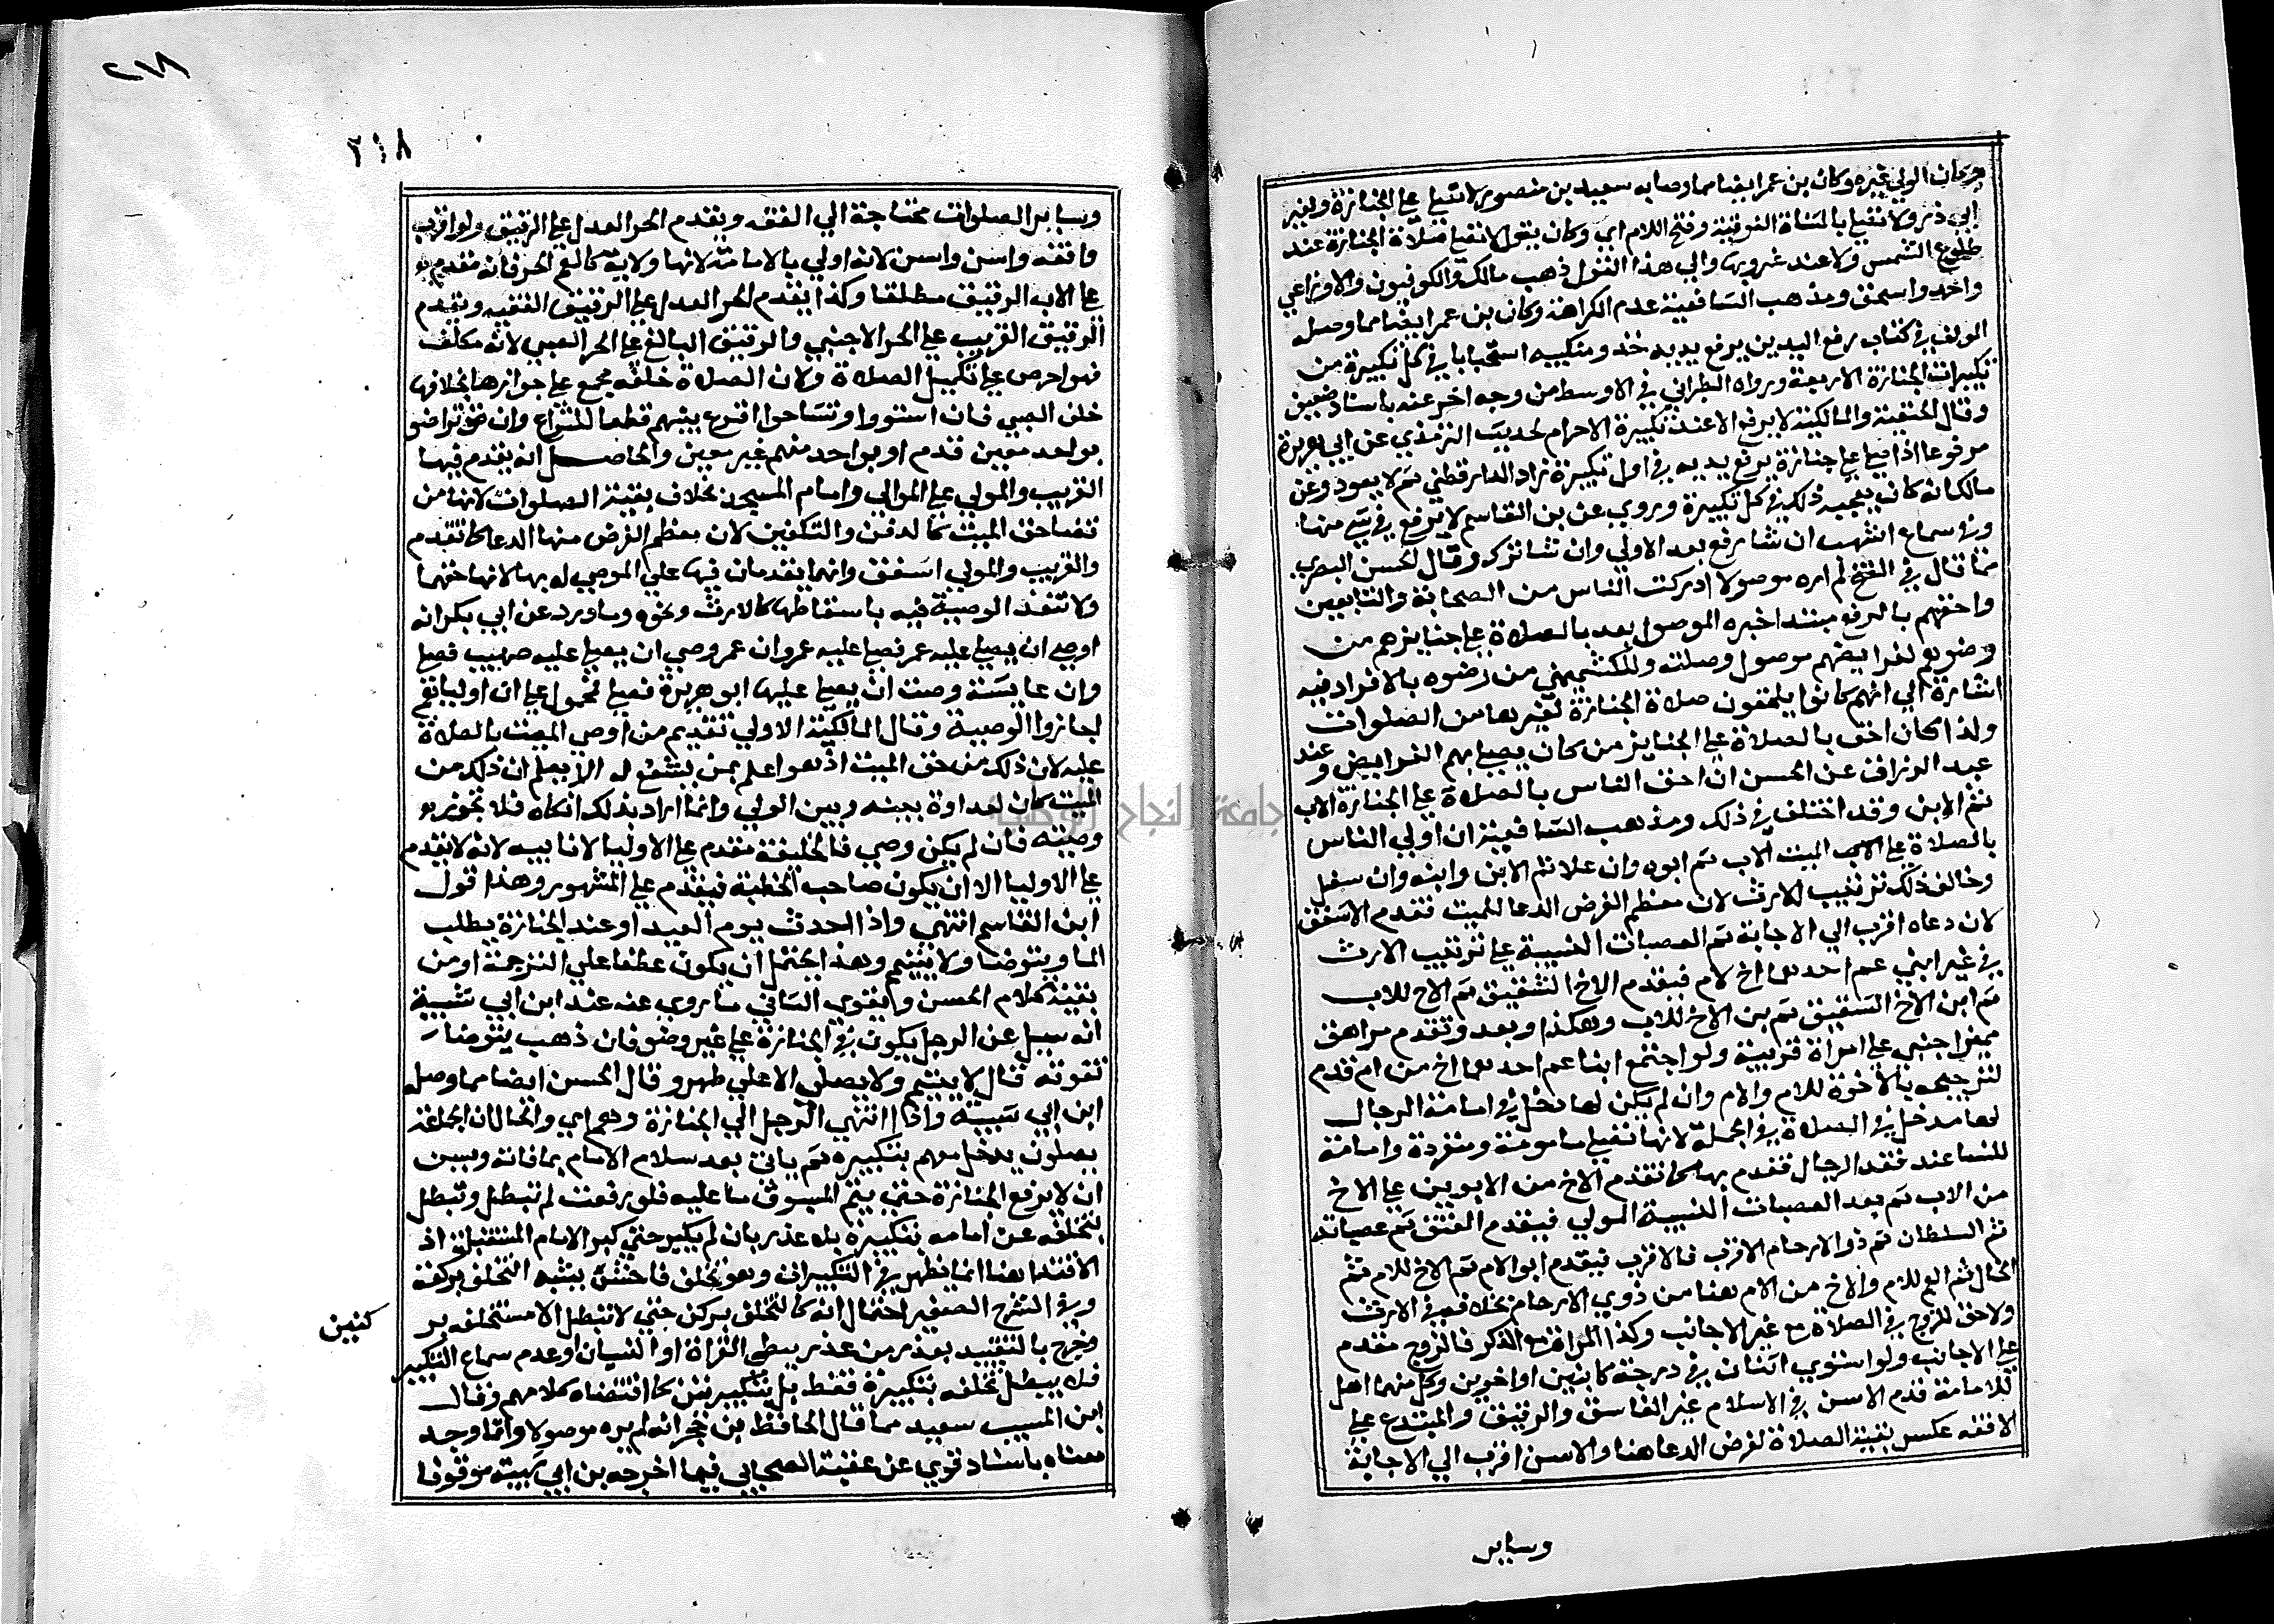 وكان بن عمر ايضا مما وصله سعيد بن منصور لا تصلي علي الجنازة ولغير
ابي ذر ولا تصلي بالمثناة الفوقية وفتح اللام اي وكان يقول لا تصلي صلاة الجنازة عند
طلوع الشمس ولا عند غروبها والي هذا القول ذهب مالك والكوفيون والاوزاعي
واحمد واسحق ومذهب الشافعية عدم الكراهة وكان بن عمر ايضا مما وصله
المولف في كتاب رفع اليدين يرفع يديه حذو منكبيه استحبابا في كل تكبيرة من
تكبيرات الجنازة الاربعة ورواه الطبراني في الاوسط من وجه اخر عنه باسناد ضعيف
وقال الحنفية والمالكية لا يرفع الا عند تكبيرة الاحرام لحديث الترمذي عن ابي هريرة
مرفوعا اذا صلي علي جنازة يرفع يديه في اول تكبيرة زاد الدارقطني ثم لا يعود وعن
مالك انه كان يعجبه ذلك في كل تكبيرة وروي عن بن القاسم لا يرفع في شي منها
وفي سماع اشهب ان شا رفع بعد الاولي وان شا ترك وقال الحسن البصري
مما قال في الفتح لم اره موصولا ادركت الناس من الصحابة والتابعين
واحقهم بالرفع مبتدا خبره الموصول بعد بالصلاة علي جنايزهم من
رضوهم لفرايضهم موصول وصلته وللكشميهني من رضوه بالافراد فيه
اشارة الي انهم كانوا يلحقون صلاة الجنازة بغيرها من الصلوات
ولذا كان احق بالصلاة علي الجنايز من كان يصلي بهم الفرايض وعند
عبد الرزاق عن الحسن ان احق الناس بالصلاة علي الجنازة الاب
ثم الابن وقد اختلف في ذلك ومذهب الشافعية ان اولي الناس
بالصلاة علي الميت الاب ثم ابوه وان علا ثم الابن وابنه وان سفل
وخالف ذلك ترتيب الارث لان معظم الغرض الدعا للميت فقدم الاشفق
لان دعاه اقرب الي الاجابة ثم العصبات النسبية علي ترتيب الارث
في غير ابني عم احدهما اخ لام فيقدم الاخ الشقيق ثم الاخ للاب
ثم ابن الاخ الشقيق ثم بن الاخ للاب وهكذا وبعد وتقدم مراهق
مميز اجنبي علي امراة قريبة ولو اجتمع ابنا عم احدهما اخ من ام قدم
لترجيحه بالاخوة للام والام وان لم يكن لها دخل في امامة الرجال
لها مدخل في الصلاة في الجملة لانها تصلي مامومة ومنفردة وامامة
للنسا عند فقد الرجال فقدم بها كما تقدم الاخ من الابوين علي الاخ
من الاب ثم بعد العصبات النسبية المولي فيقدم المعتق ثم عصباته
ثم السلطان ثم ذو الارحام الاقرب فالاقرب فيقدم ابو الام ثم الاخ للام ثم
الخال ثم العم للام والاخ من الام هنا من ذوي الارحام بخلافه في الارث
ولا حق للزوج في الصلاة مع غير الاجانب وكذا المراة مع الذكر فالزوج مقدم
علي الاجانب ولو استوي اثنان في درجة كابنين او اخوين وكل منهما اهل
للامامة قدم الاسن في الاسلام غير الفاسق والرقيق والمبتدع علي
الافقه عكس بقية الصلاة لغرض الدعا هنا والاسن اقرب الي الاجابة
وساير
٢١٨
٣١٨
وساير الصلوات محتاجة الي الفقه ويقدم الحر العدل علي الرقيق ولو اقرب
وافقه واسن واسن لانه اولي بالامامة لانها ولاية كالعم الحر فانه مقدم
علي الاب الرقيق مطلقا وكذا يقدم الحر العدل علي الرقيق الفقيه ويقدم
الرقيق القريب علي الحر الاجنبي والرقيق البالغ علي الحر الصبي لانه مكلف
فهو احرص علي تكميل الصلاة ولان الصلاة خلفه مجمع علي جوازها بخلافها
خلف الصبي فان استووا وتشاحوا اقرع بينهم قطعا للنزاع وان تراضوا
بواحد معين قدم او بواحد منهم غير معين والحاصل انه يقدم فيها
القريب والمولي علي الوالي وامام المسجد بخلاف بقية الصلوات لانها من
قضا حق الميت كالدفن والتكفين لان معظم الغرض منها الدعا كما تقدم
والقريب والمولي اشفق وانما يقدمان فيها علي الموصي له بها لانها حقهما
ولا تنفذ الوصية فيه باسقاطها كالارث ونحوه وما ورد عن ابي بكر انه
اوصي ان يصلي عليه عمر فصلي عليه عمر وان عمر وصي ان يصلي عليه صهيب فصلي
وان عايشة وصت ان يصلي عليها ابو هريرة فصلي محمول علي ان اولياهم
اجازوا الوصية وقال المالكية الاولي تقديم من اوصي الميت بالصلاة
عليه لان ذلك من حق الميت اذ هو اعلم بمن يشفع له الا ان يعلم ان ذلك من
الميت كان لعداوة بينه وبين الولي وانما اراد بذلك انكاه فلا تجوز
وصيته فان لم يكن وصي فالخليفة مقدم علي الاوليا لا نايبه لانه لا يقدم
علي الاوليا الا ان يكون صاحب الخطبة فيقدم علي المشهور وهذا قول
ابن القاسم انتهي واذا احدث يوم العيد او عند الجنازة يطلب
الما ويتوضا ولا يتيمم وهذا يحتمل ان يكون عطفا علي الترجمة او من
بقية كلام الحسن ويقوي الثاني ما روي عنه عند ابن ابي شيبة
انه سيل عن الرجل يكون في الجنازة علي غير وضو فان ذهب يتوضا
تفوته قال لا يتيمم ولا يصلي الا علي طهر وقال الحسن ايضا مما وصله
ابن ابي شيبة واذا انتهي الرجل الي الجنازة وهم اي والحال ان الجماعة
يصلون يدخل معهم بتكبيرة ثم ياتي بعد سلام الامام بما فاته ويسن
ان لا يرفع الجنازة حتي يتم المسبوق ما عليه فلو رفعت لم تبطل وتبطل
بتخلفه عن امامه بتكبيرة بلا عذر بان لم يكبر حتي كبر الامام المستقبلة اذ
الاقتدا هنا انما يظهر في التكبيرات وهو تخلف فاحش يشبه التخلف بركعة
وفي الشرح الصغير احتمال انه كالتخلف بركن حتي لا تبطل الا بتخلفه بر
كنين
وخرج بالتقييد بعذر من عذر ببطي القراة او النسيان او عدم سماع التكبير
فلا يبطل تخلفه بتكبيرة فقط بل بتكبيرتين كما اقتضاه كلامهم وقال
ابن المسيب سعيد مما قال الحافظ بن حجر انه لم يره موصولا وانما وجد
معناه باسناد قوي عن عقبة الصحابي فيما اخرجه بن ابي شيبة موقوفا
جامعة النجاح الوطنية